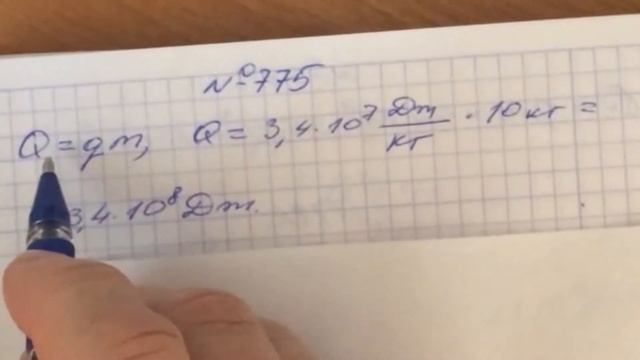 №775
Q = qm, Q = 3,4·10⁷ Дж/кг · 10 кг =
3,4·10⁸ Дж.